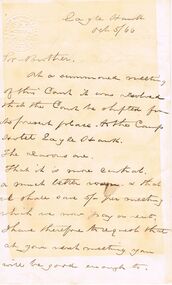 Eagle Hawk
Oct 5/66
Brother.
At a summoned meeting
of this Court it was resolved
that the Court be shifted from
its present place to the Camp
Hotel Eagle Hawk.
The reasons are.
That it is more central.
a much better room & that
at per meeting
which we now pay as rent,
I have therefore to request that
at your next meeting you
will be good enough to.